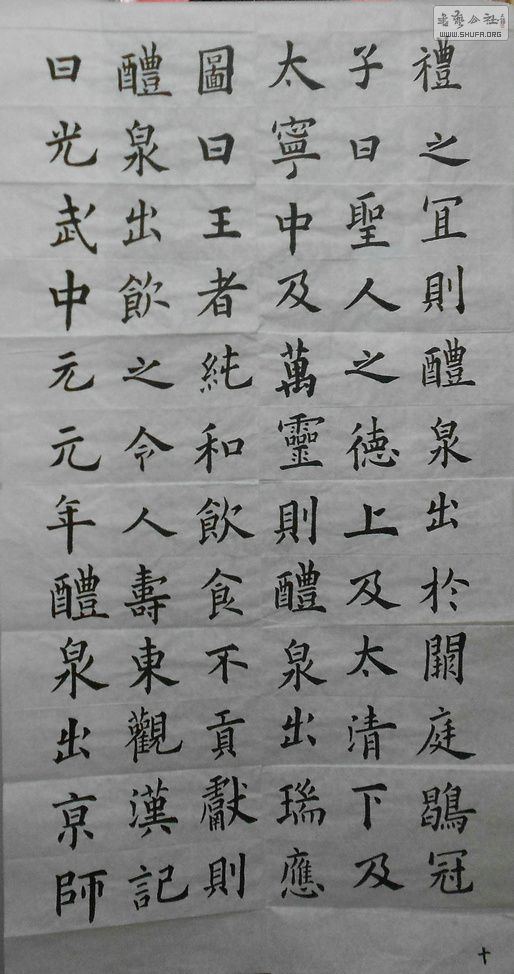 禮之宜則醴泉出於闕庭鶡冠
子曰聖人之德上及太清下及
太寧中及萬靈則醴泉出瑞應
圖曰王者純和飲食不貢獻則
醴泉出飲之令人壽東觀漢記
曰光武中元元年醴泉出京師
十
書藝公社
WWW.SHUFA.ORG